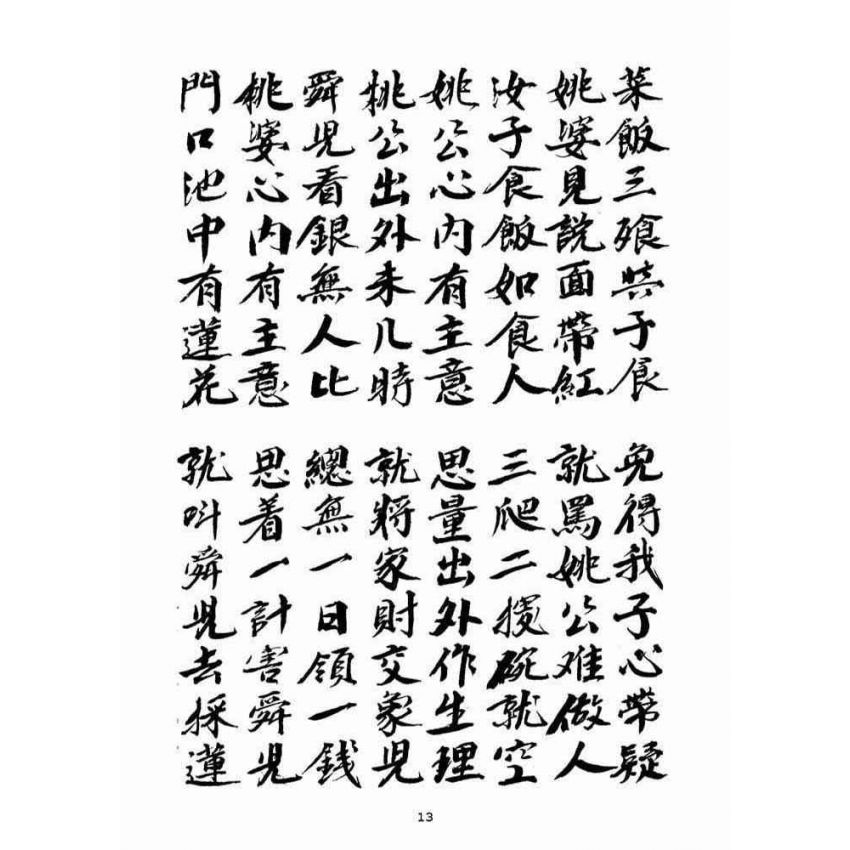 菜飯三飧與子食 免得我子心帶疑
姚婆見說面帶紅 就罵姚公难做人
汝子食飯如食人 三爬二碗就空
姚公心内有主意 思量出外作生理
桃公出外未几時 就將家財交象兒
舜児看銀無人比 總無一日領一錢
桃婆心内有主意 思着一計害舜児
門口池中有蓮花 就叫舜児去採蓮
13